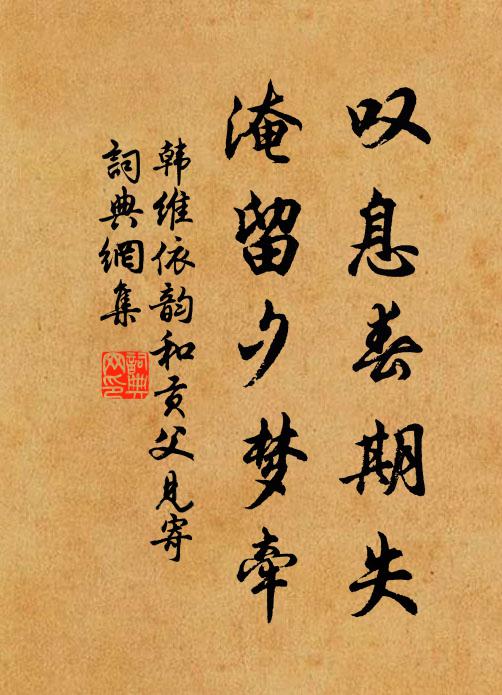 叹息春期失
淹留夕梦牵
韩维依韵和贡父见寄
詞典網集
詞典网印